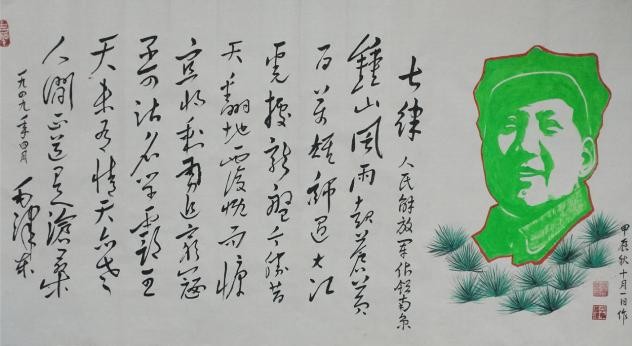 甲辰秋十月一日作
七律 人民解放军佔领南京
鐘山風雨起蒼黄
百万雄師過大江
虎踞龍盤今勝昔
天翻地覆慨而慷
宜将剩勇追窮寇
不可沽名学霸王
天若有情天亦老
人間正道是滄桑
一九四九年四月 毛泽东